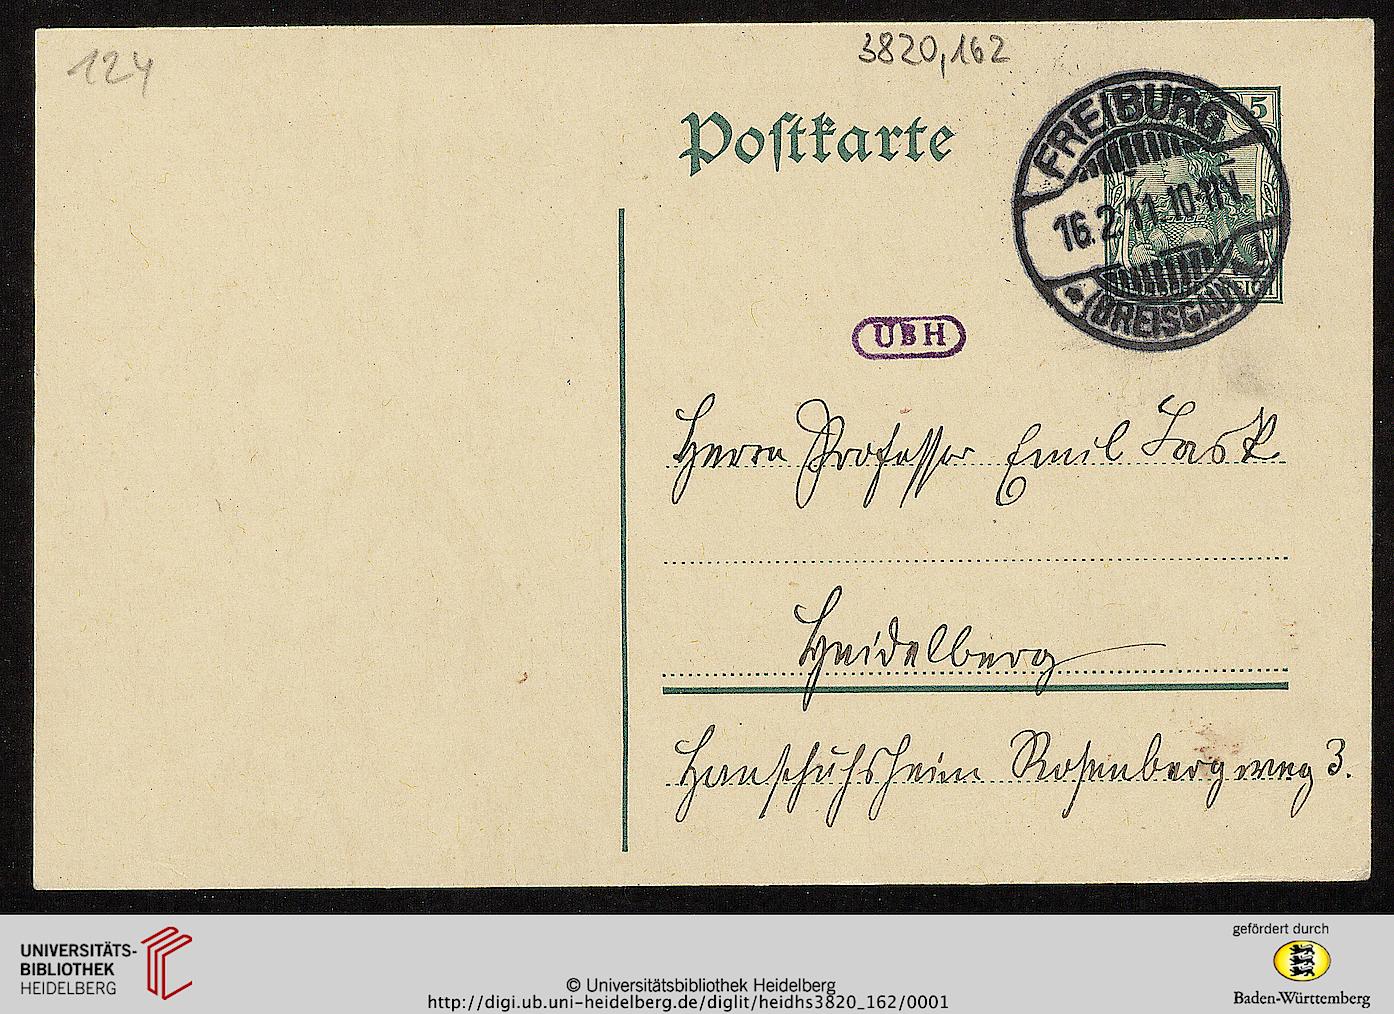 124
3820,162
Postkarte
5
FREIBURG
16.2.11.10-11V.
(BREISGAU)
UBH
Herrn Professor Emil Lask
Heidelberg
Hanschuhsheim Rosenbergweg 3.
UNIVERSITÄTS-
BIBLIOTHEK
HEIDELBERG
© Universitätsbibliothek Heidelberg
http://digi.ub.uni-heidelberg.de/diglit/heidhs3820_162/0001
gefördert durch
Baden-Württemberg